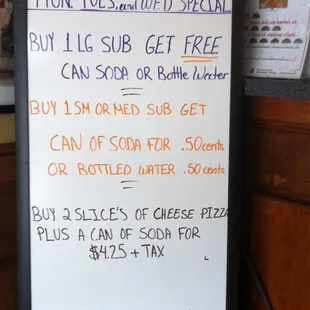 MON. TUES. and WED SPECIAL
BUY 1 LG SUB GET FREE
CAN SODA OR Bottle Water
BUY 1 SM OR MED SUB GET
CAN OF SODA FOR .50 cents
OR BOTTLED WATER .50 cents
BUY 2 SLICE'S OF CHEESE PIZZA
PLUS A CAN OF SODA FOR
$4.25 + TAX